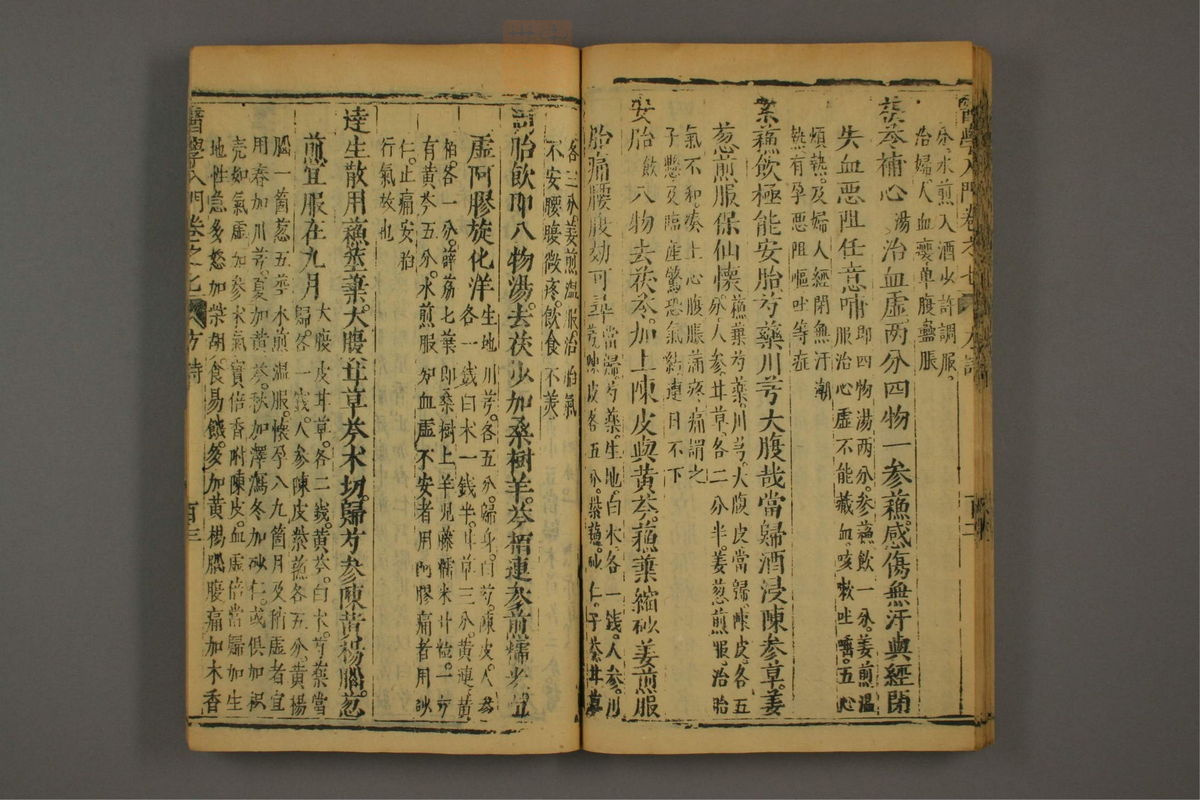 醫學入門卷之七
分水煎入酒少許調服
治婦人血虛單腹蠱脹
茯苓補心湯治血虛兩分四物一參蘇感傷無汗與經閉
失血惡阻任意哺即四物湯兩分參蘇飲一分姜煎溫服治心虛不能藏血咳嗽吐衂五心
煩熱及婦人經閉無汗潮
熱有孕惡阻嘔吐等症
紫蘇飲極能安胎芍藥川芎大腹哉當歸酒浸陳參草姜
葱煎服保仙懷蘇葉芍藥川芎大腹皮當歸陳皮各五分人參甘草各二分半姜葱煎服治胎
氣不和湊上心腹脹滿疼痛謂之
子懸及臨產驚恐氣結連日不下
安胎飲八物去茯苓加上陳皮與黃芩蘇葉縮砂姜煎服
胎痛腰腹効可尋當歸芍藥生地白朮各一錢人參川芎陳皮各五分紫蘇砂仁子芩甘草
各三分姜煎溫服治胎氣
不安腰腹微疼飲食不美
胎飲即八物湯去茯苓加桑樹羊芩栢連參煎糯米宜
虛阿膠旋化洋生地川芎各五分歸身白芍陳皮人參各一錢白朮一錢半甘草三分黃連黃
栢各一分薜荔七葉即桑樹上羊兒藤糯米廿粒一方
有黃芩五分水煎服如血虛不安者用阿膠痛者用砂
仁止痛安胎
行氣故也
達生散用蘇莖葉大腹甘草芩朮切歸芍參陳黃楊腦葱
煎宜服在九月大腹皮甘草各二錢黃芩白朮芍藥當歸各一錢人參陳皮紫蘇各五分黃楊
腦一箇葱五莖水煎溫服懷孕八九箇月及稍虛者宜
用春加川芎夏加黃芩秋加澤瀉冬加砂仁或俱加枳
殼如氣虛加參朮氣實倍香附陳皮血虛倍當歸加生
地性急多怒加柴胡食易饑多加黃楊腦腹痛加木香
醫學入門卷之七 方詩 百三